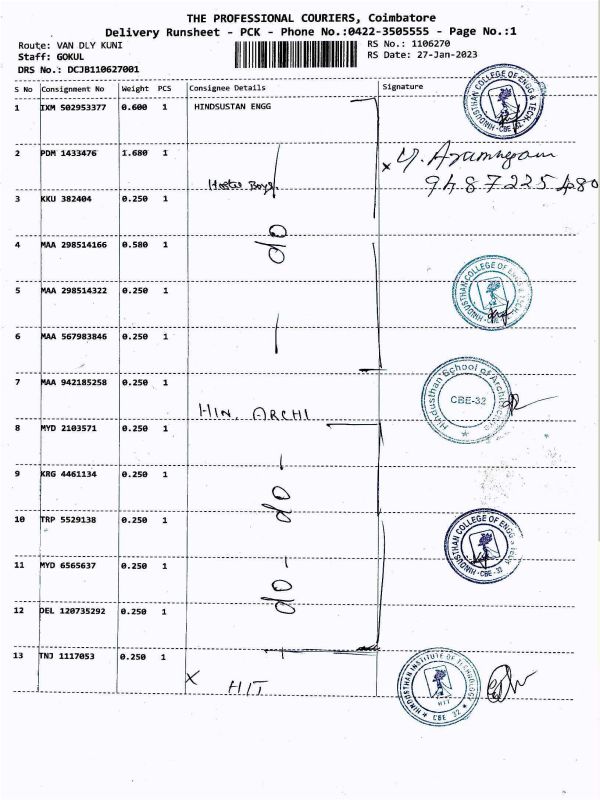 THE PROFESSIONAL COURIERS, Coimbatore
Delivery Runsheet - PCK - Phone No.:0422-3505555 - Page No.:1
Route: VAN DLY KUNI
RS No.: 1106270
Staff: GOKUL
RS Date: 27-Jan-2023
DRS No.: DCJB110627001
S No Consignment No Weight PCS Consignee Details Signature
1 IXM 502953377 0.600 1 HINDSUSTAN ENGG
HINDUSTHAN COLLEGE OF ENGG & TECH CBE-32
2 PDM 1433476 1.680 1
Hostel Boys
9487225480
3 KKU 382404 0.250 1
do
4 MAA 298514166 0.580 1
5 MAA 298514322 0.250 1
HINDUSTHAN COLLEGE OF ENGG & TECH CBE
6 MAA 567983846 0.250 1
7 MAA 942185258 0.250 1
HIN. ARCHI
Hindusthan School of Architecture CBE-32
8 MYD 2103571 0.250 1
9 KRG 4461134 0.250 1
do -
10 TRP 5529138 0.250 1
HINDUSTHAN COLLEGE OF ENGG & TECH CBE - 32
11 MYD 6565637 0.250 1
do -
12 DEL 120735292 0.250 1
13 TNJ 1117053 0.250 1
x HIT
HINDUSTHAN INSTITUTE OF TECHNOLOGY HIT CBE 32